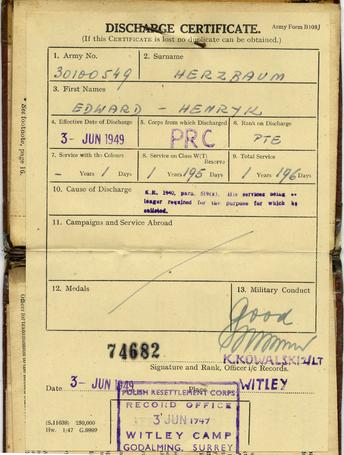 DISCHARGE CERTIFICATE.
Army Form B108J
(If this CERTIFICATE is lost no duplicate can be obtained.)
1. Army No.
2. Surname
30100549
HERZBAUM
3. First Names
EDWARD - HENRYK
4. Effective Date of Discharge
5. Corps from which Discharged
6. Rank on Discharge
3- JUN 1949
PRC
PTE
7. Service with the Colours
8. Service on Class W(T) Reserve
9. Total Service
- Years 1 Days
1 Years 195 Days
1 Years 196 Days
10. Cause of Discharge
K.R. 1940, para. 519(x). His services being no
longer required for the purpose for which he
enlisted.
11. Campaigns and Service Abroad
12. Medals
13. Military Conduct
Good
74682
K. KOWALSKI 2/LT
Signature and Rank, Officer i/c Records.
Date 3- JUN 1949
WITLEY
POLISH RESETTLEMENT CORPS
RECORD OFFICE
3 JUN 1947
WITLEY CAMP
GODALMING, SURREY
(S.11638) 250,000
Hw. 1/47 G.9989
* See footnote, page 16.